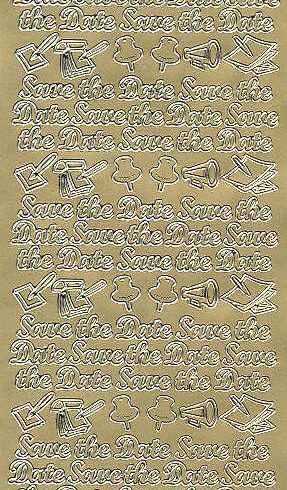 Save the Date Save
the Date Save the Date
Save the Date Save the
Date Save the Date Save
the Date Save the Date
Save the Date Save the
Date Save the Date Save
the Date Save the Date
Save the Date Save the
Date Save the Date Save
the Date Save the Date
Save the Date Save the
Date Save the Date Save
the Date Save the Date